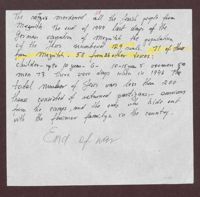 The natives murdered all the Jewish people from
Mogilita. The end of the last days of the
German occupation of Mogilita the population
of the Jews numbered 129 souls - 71 of them
from Mogilita - 58 from other towns:
children - up to 10 years - 6 - 10-15 years 5 women 50
men 73 There were days when in 1942 the
total number of Jews was less than 200
these consisted of returned partisans, survivors
from the camps, and the ones who hide out
with the farmer families in the country.
End of war